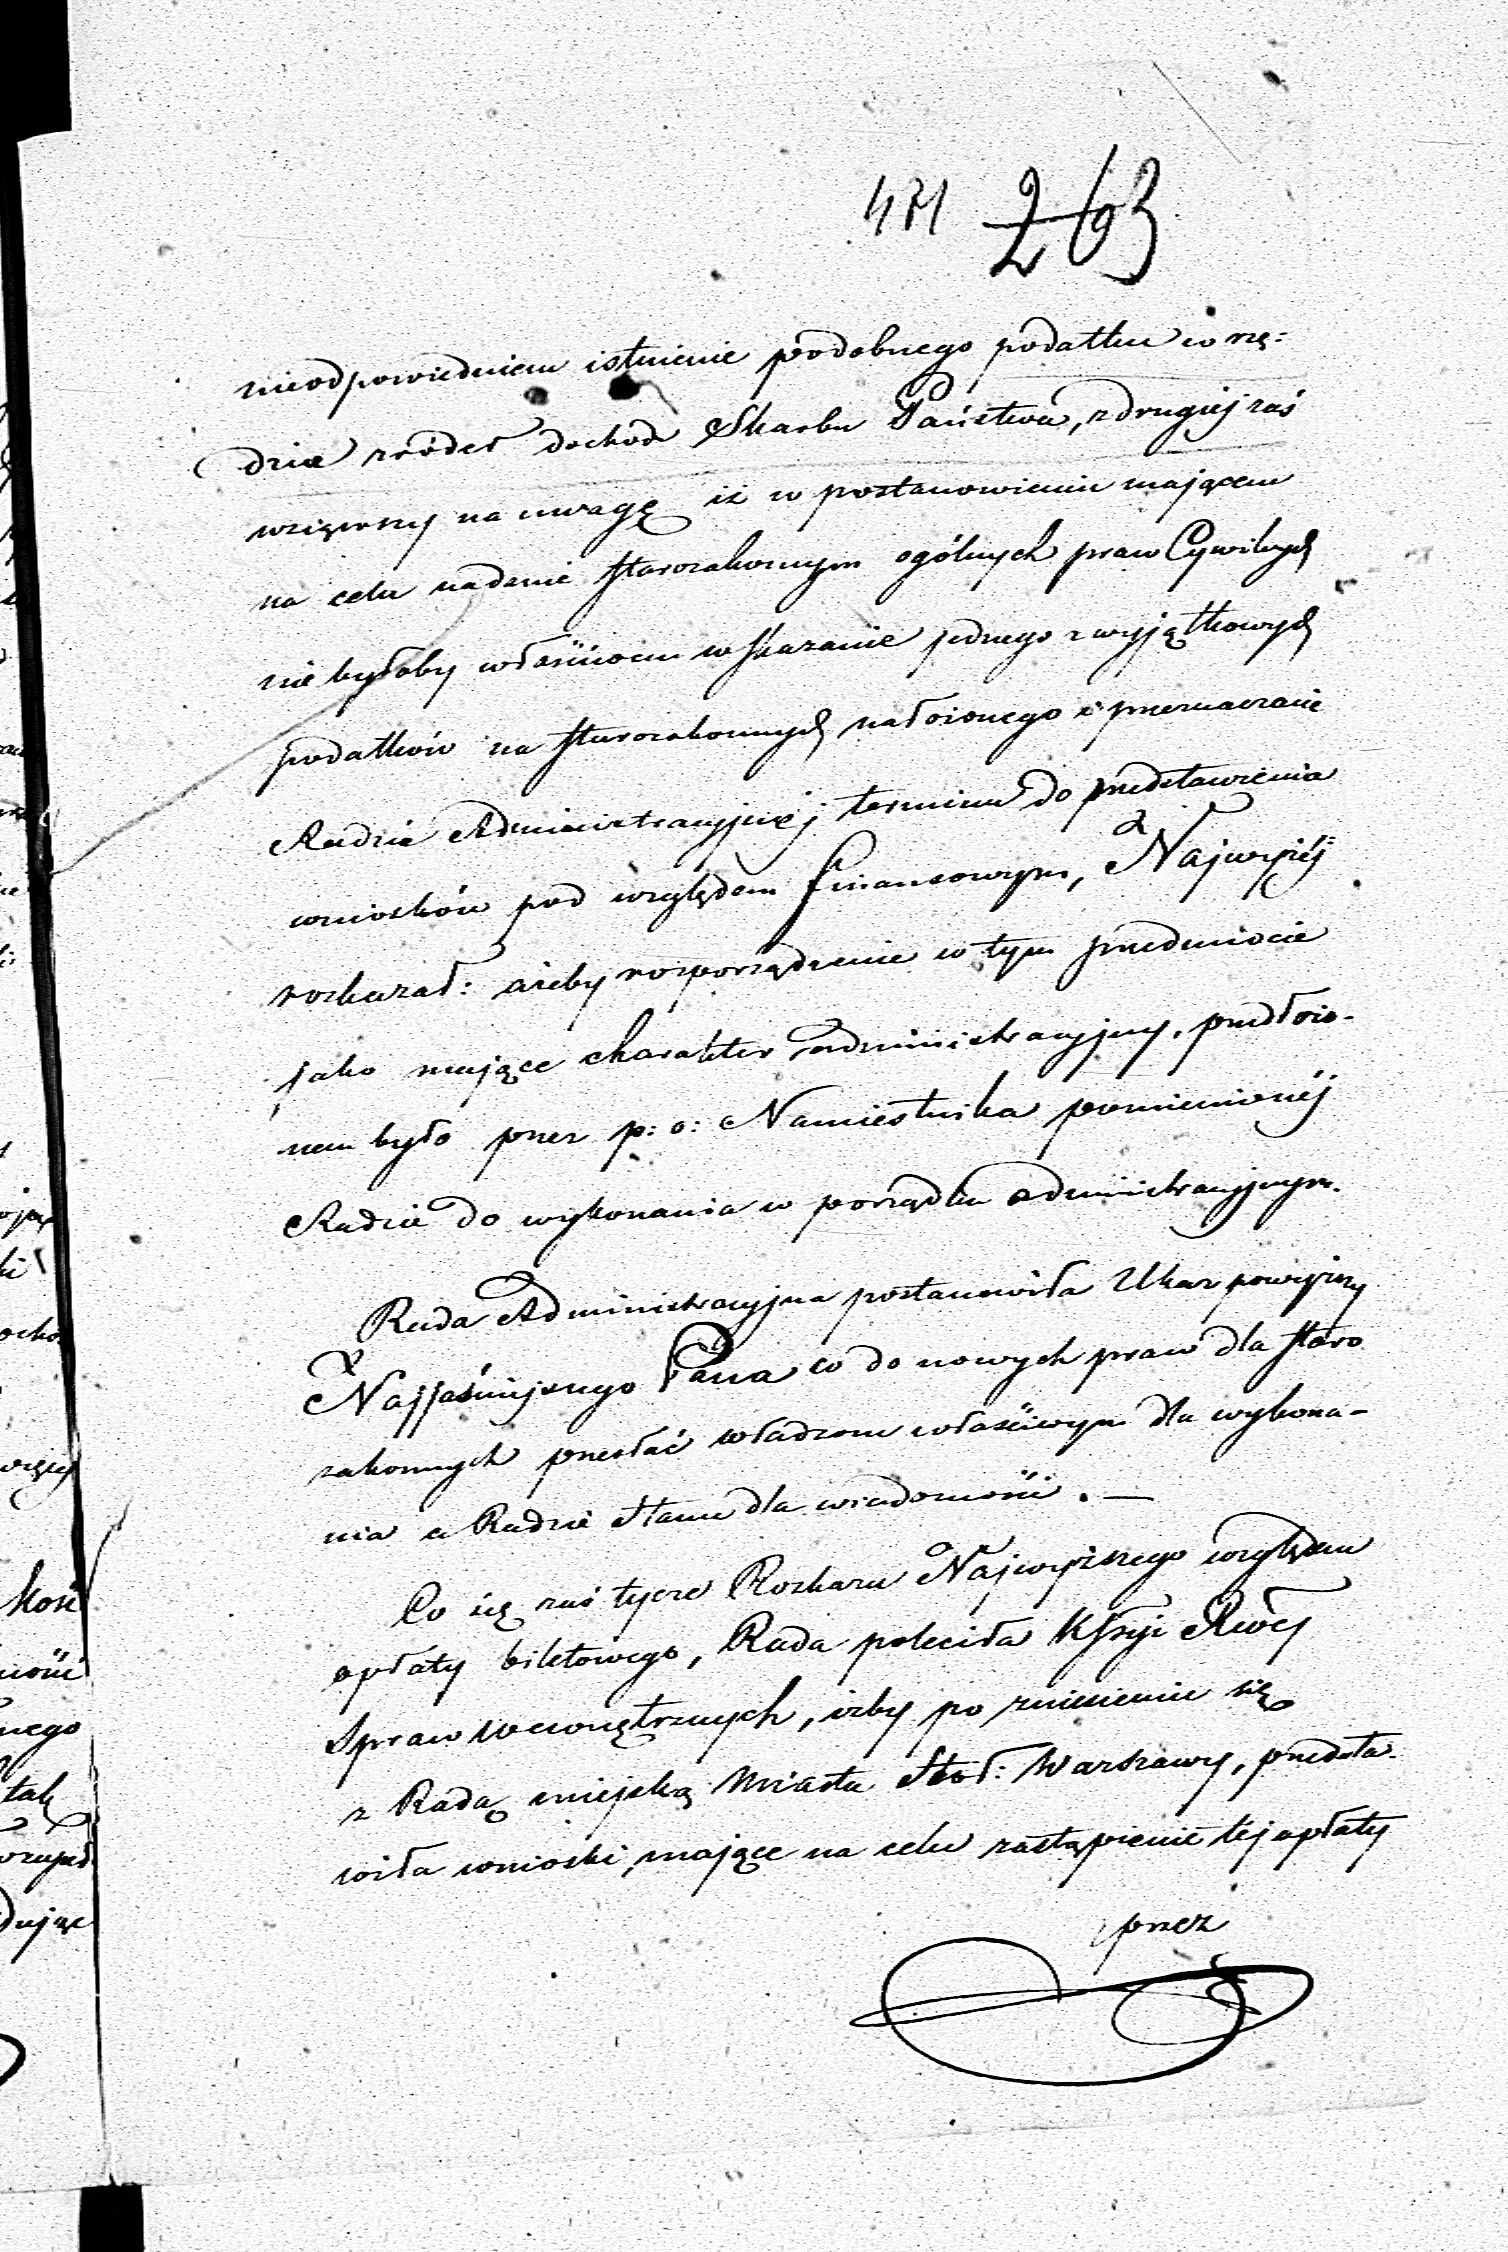 471 263
nieodpowiedniem istnienie podobnego podatku w rzę=
dzie źródeł dochod Skarbu Państwa, z drugiej zaś
wziąwszy na uwagę iż w postanowieniu mającem
na celu nadanie starozakonnym ogólnych praw Cywilnych
nie byłoby właściwem wskazanie jednego z wyjątkowych
podatków na starozakonnych nałożonego i przeznaczanie
Radzie Administracyjnej terminu do przedstawienia
wniosków pod względem finansowym, Najwyżej
rozkazał: ażeby rozporządzenie w tym przedmiocie
jako mające charakter administracyjny, przedłożo-
nem było przez p: o: Namiestnika pomienionéj
Radzie do wykonania w porządku administracyjnym.
Rada Administracyjna postanowiła Ukaz powyższy
Najjaśniejszego Pana co do nowych praw dla staro
zakonnych przesłać władzom właściwym dla wykona-
nia a Radzie Stanu dla wiadomości. —
Co się zaś tycze Rozkazu Najwyższego względem
opłaty biletowego, Rada poleciła Kssyi Rwéj
Spraw Wewnętrznych, iżby po zniesieniu się
z Radą miejską Miasta Stoł: Warszawy, przedsta-
wiła wnioski, mające na celu zastąpienie téj opłaty
przez